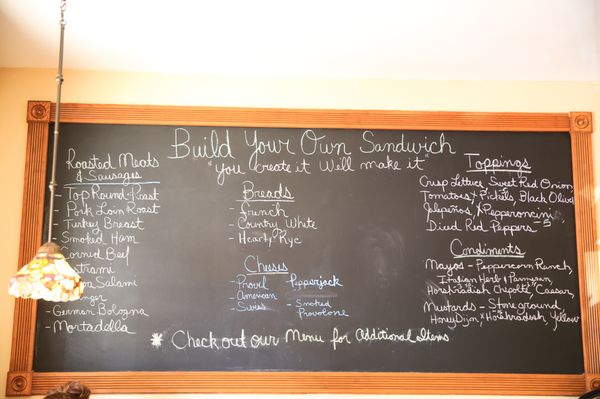 Build Your Own Sandwich
"you create it We'll make it"
Roasted Meats
& Sausages
- Top Round Roast
Pork Loin Roast
Turkey Breast
Smoked Ham
Corned Beef
Salami
- German Bologna
- Mortadella
Breads
- French
- Country White
- Hearty Rye
Cheeses
- Provol
- Pepperjack
- American
- Swiss
- Smoked
Provolone
Toppings
Crisp Lettuce, Sweet Red Onion
Tomatoes, Pickles, Black Olives
Jalepeños, Pepperoncini
Diced Red Peppers
Condiments
Mayos - Peppercorn Ranch,
Italian Herb & Parmesan,
Horshradish Chipotle Caesar,
Mustards - Stoneground,
Honey Dijon, Horshradesh, Yellow
* Check out our Menu for Additional Items